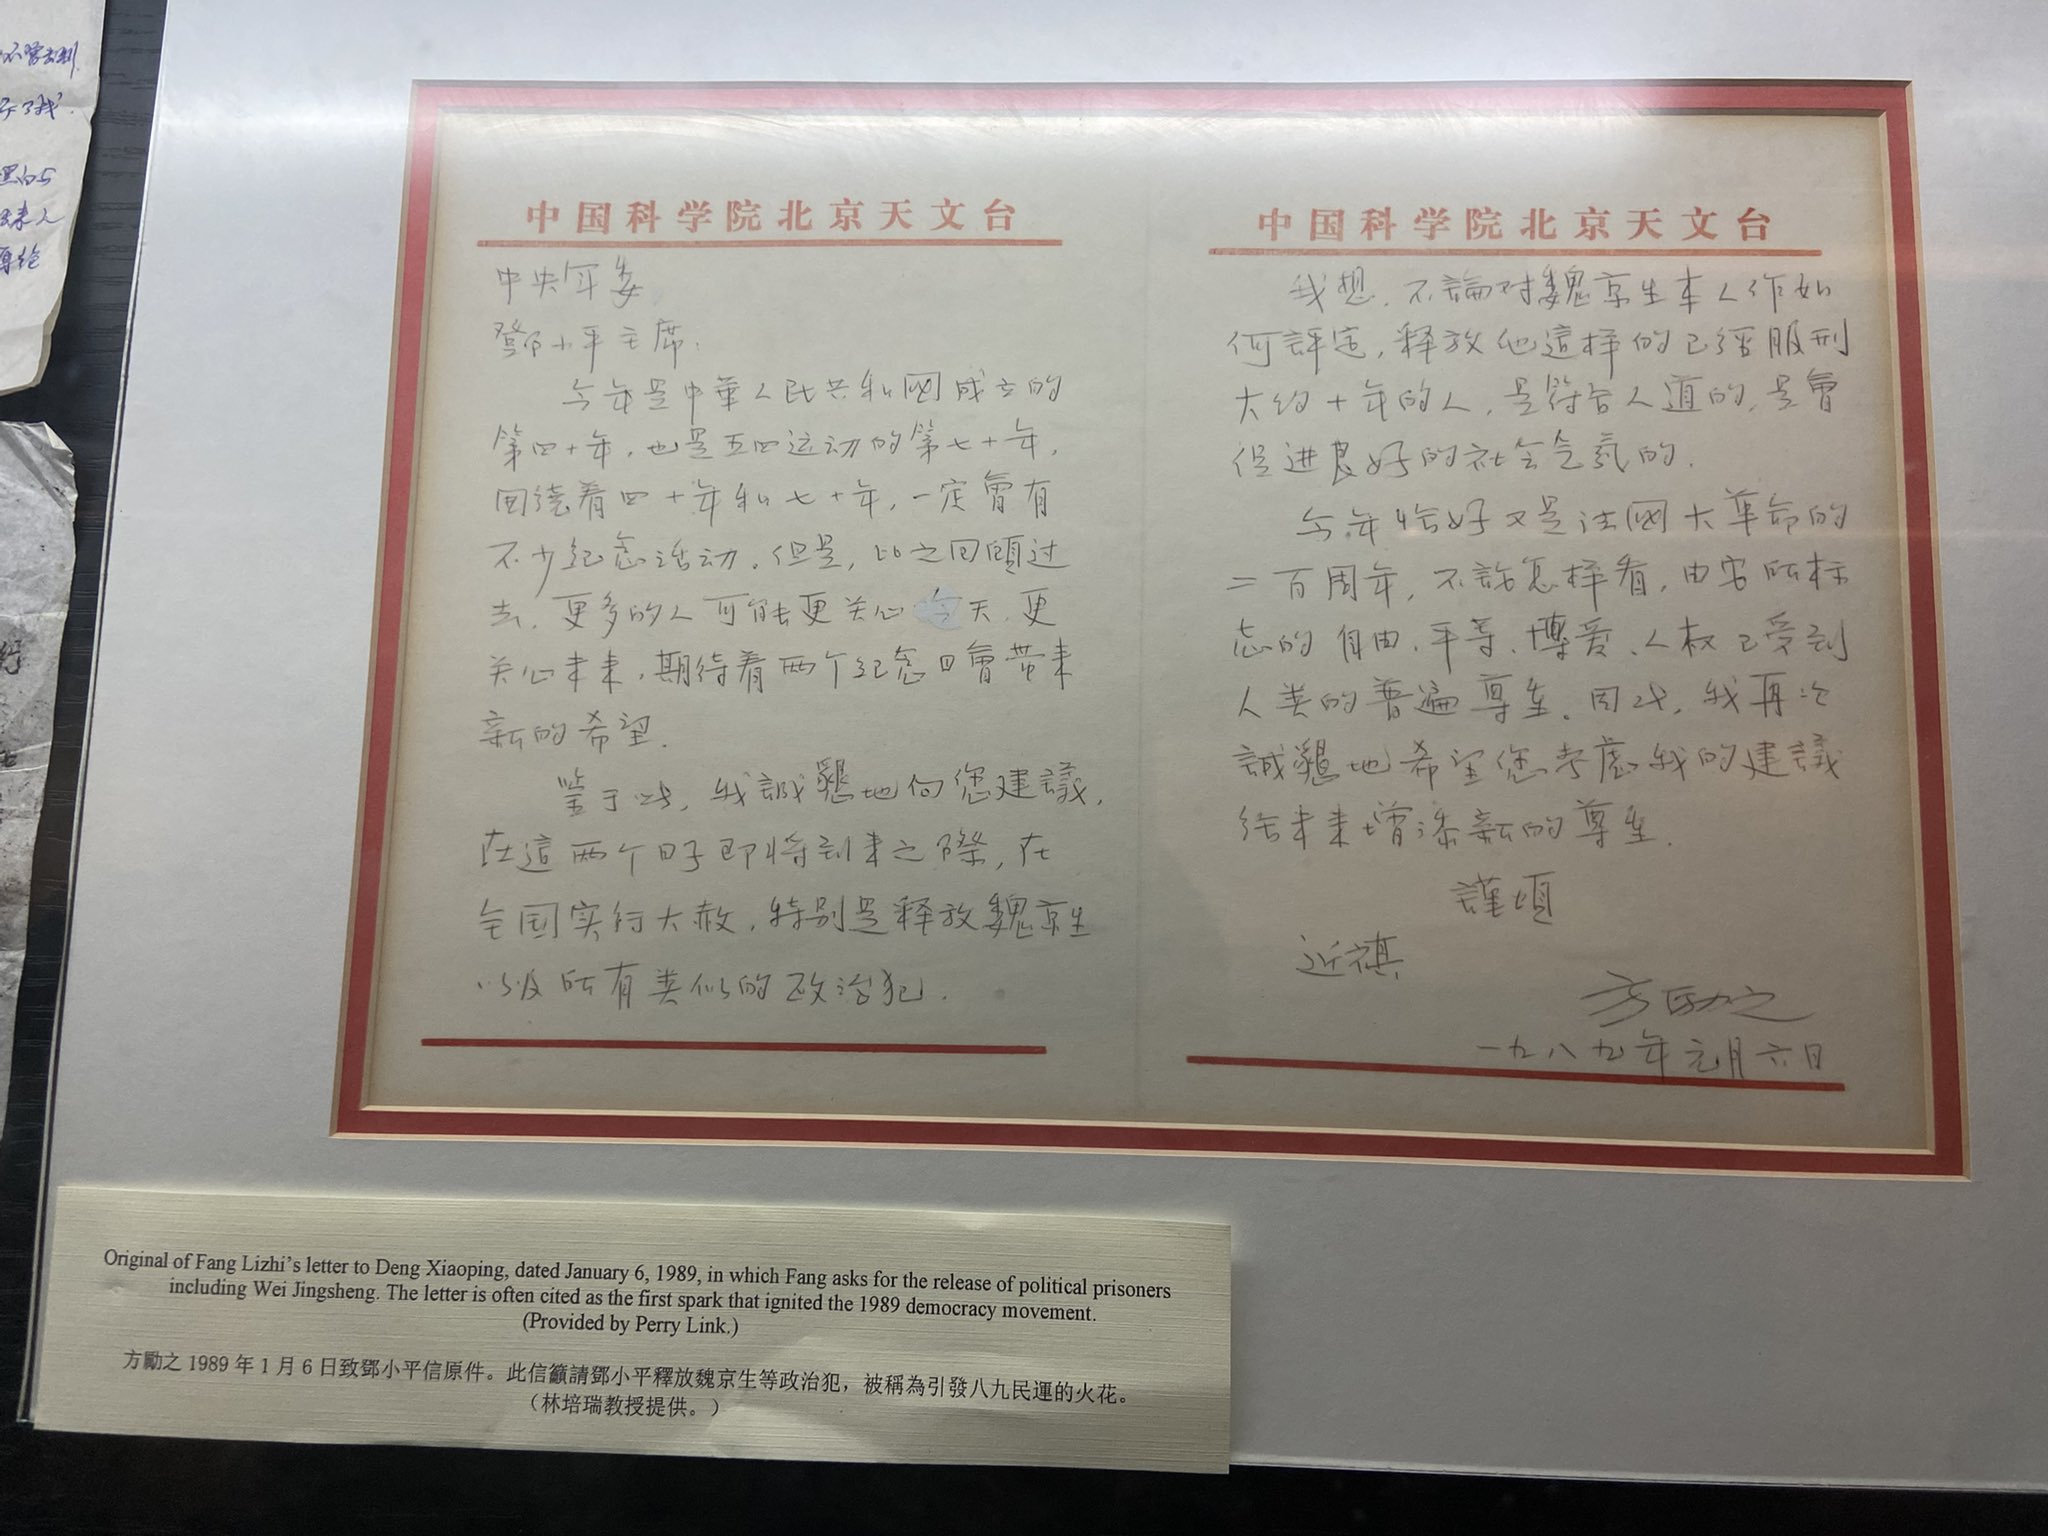 不管去判
了我
黑白与
来人
再给
中国科学院北京天文台
中央军委
邓小平主席:
今年是中華人民共和國成立的
第四十年,也是五四运动的第七十年,
围绕着四十年和七十年,一定會有
不少纪念活动.但是,比之回顧过
去,更多的人可能更关心今天,更
关心未来,期待着两个纪念日會带来
新的希望.
鉴于此,我誠懇地向您建議,
在這两个日子即将到来之際,在
全国实行大赦,特别是释放魏京生
以及所有类似的政治犯.
中国科学院北京天文台
我想,不論对魏京生本人作如
何評定,释放他這样的已经服刑
大约十年的人,是符合人道的,是會
促进良好的社会空氣的.
今年恰好又是法國大革命的
二百周年,不論怎样看,由它所标
志的自由、平等、博爱、人权已受到
人类的普遍尊重.因此,我再次
誠懇地希望您考虑我的建議
给未来增添新的尊重.
謹頌
近祺
方励之
一九八九年元月六日
Original of Fang Lizhi's letter to Deng Xiaoping, dated January 6, 1989, in which Fang asks for the release of political prisoners
including Wei Jingsheng. The letter is often cited as the first spark that ignited the 1989 democracy movement.
(Provided by Perry Link.)
方勵之 1989 年 1 月 6 日致鄧小平信原件。此信籲請鄧小平釋放魏京生等政治犯，被稱為引發八九民運的火花。
（林培瑞教授提供。）